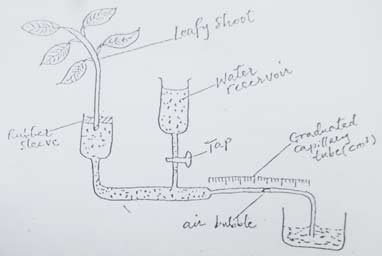 Leafy shoot
Water
reservoir
Rubber
sleeve
Tap
Graduated
capillary
tube(cm³)
air bubble